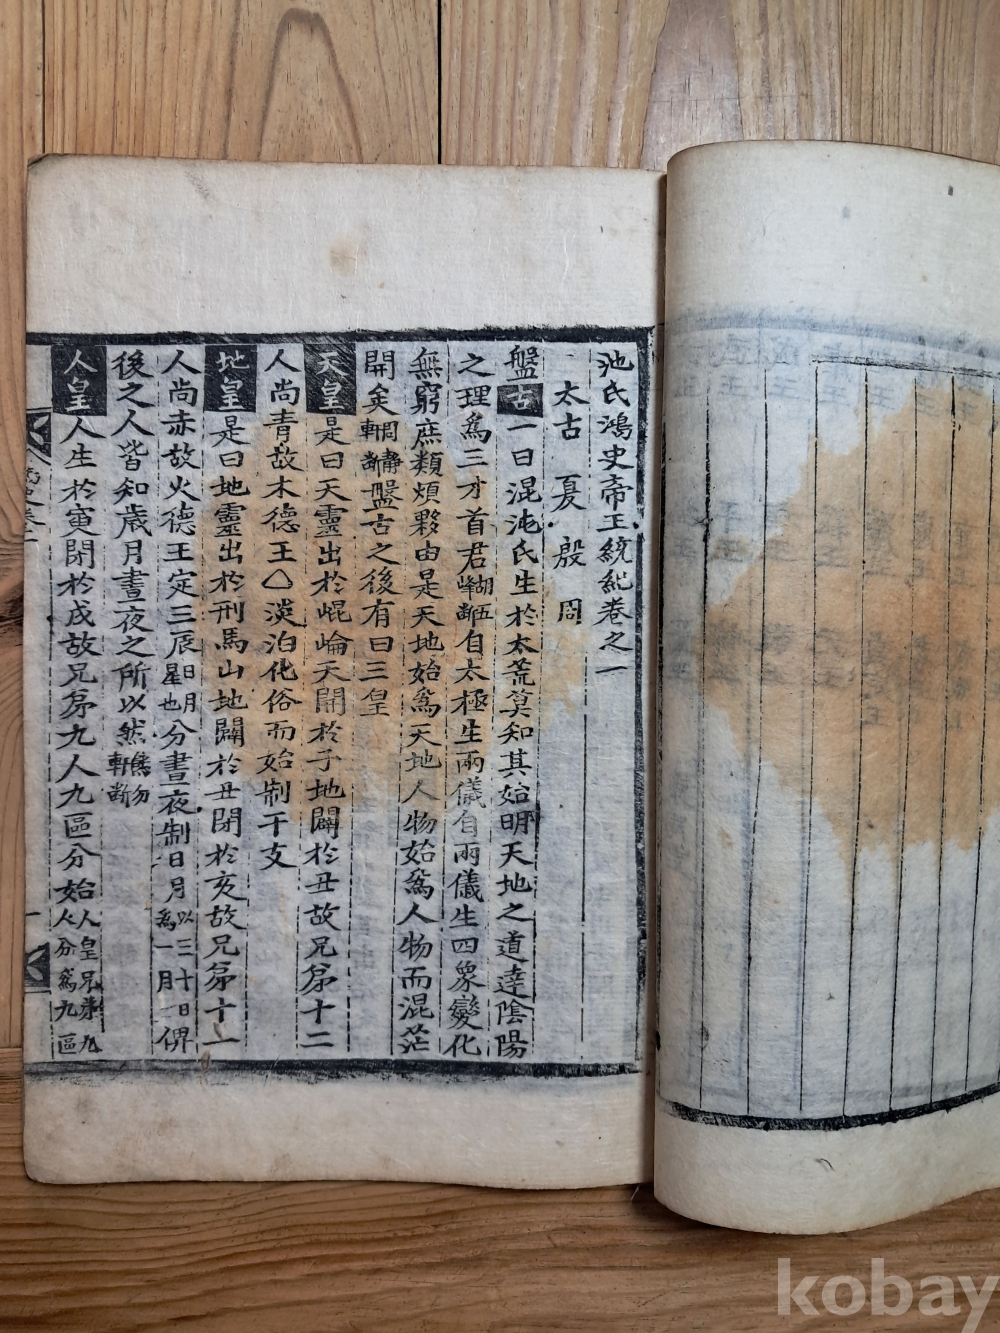 池氏鴻史帝王統紀卷之一
太古 夏 殷 周
盤古一曰混沌氏生於太荒莫知其始明天地之道達陰陽
之理爲三才首君自太極生兩儀自兩儀生四象變化
無窮庶類煩夥由是天地始爲天地人物始爲人物而混茫
開矣盤古之後有曰三皇
天皇是曰天靈出於崐崘天開於子地闢於丑故兄弟十二
人尚青故木德王△淡泊化俗而始制干支
地皇是曰地靈出於刑馬山地闢於丑閉於亥故兄弟十一
人尚赤故火德王定三辰日月星也分晝夜制日月以三十日爲一月俾
後之人皆知歲月晝夜之所以然
人皇人生於寅閉於戌故兄弟九人九區分始人皇兄弟九人分爲九區
kobay